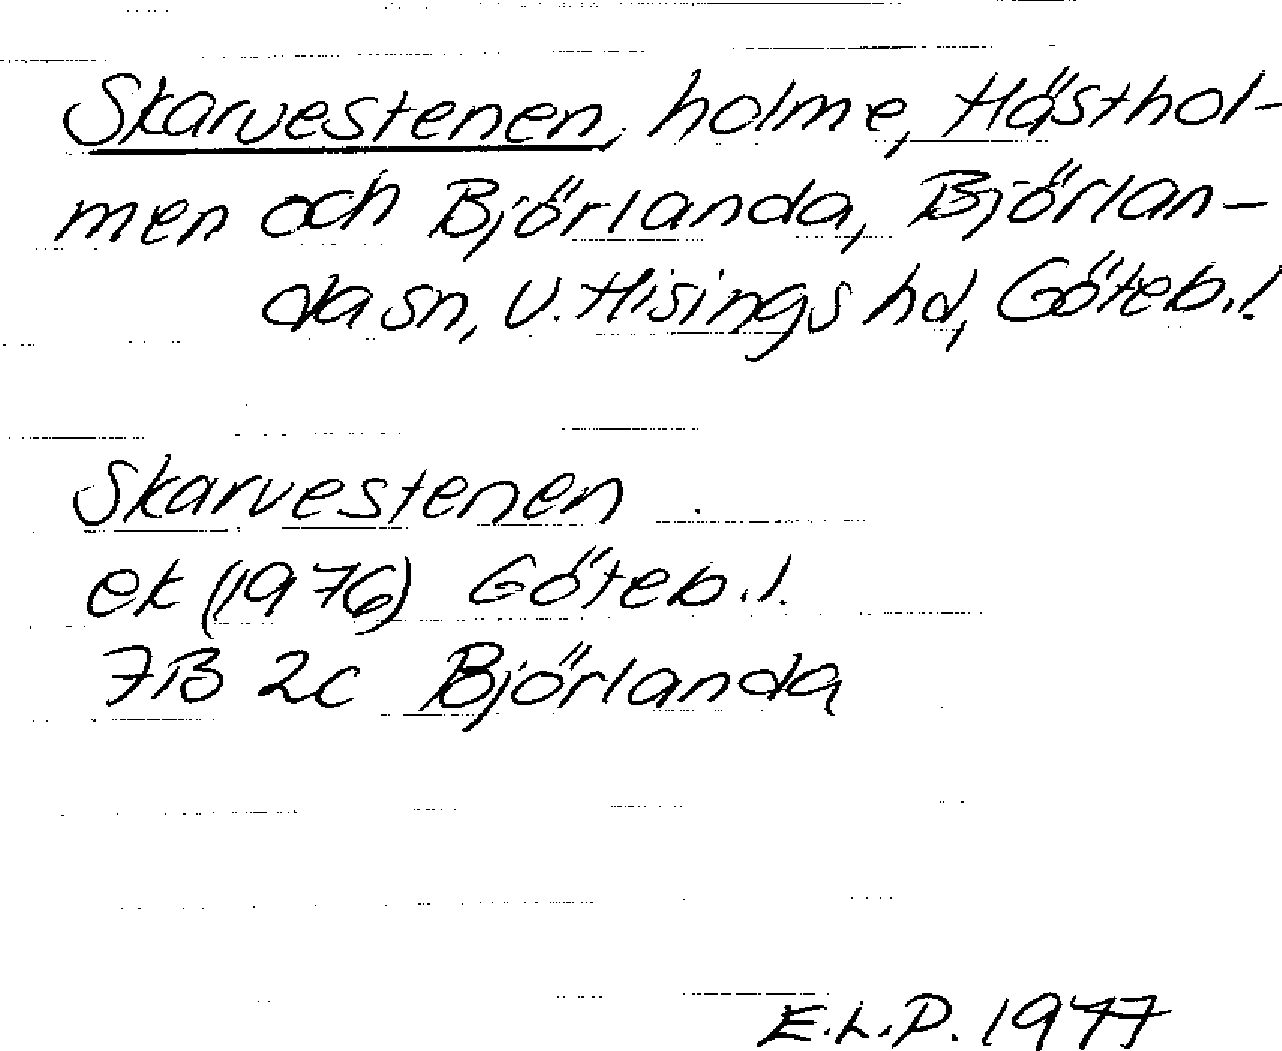 Skarvestenen, holme, Hästhol-
men och Björlanda, Björlan-
da sn, V. Hisings hd, Göteb.l.
Skarvestenen
ek (1976) Göteb.l.
7B 2c Björlanda
E.L.P. 1977